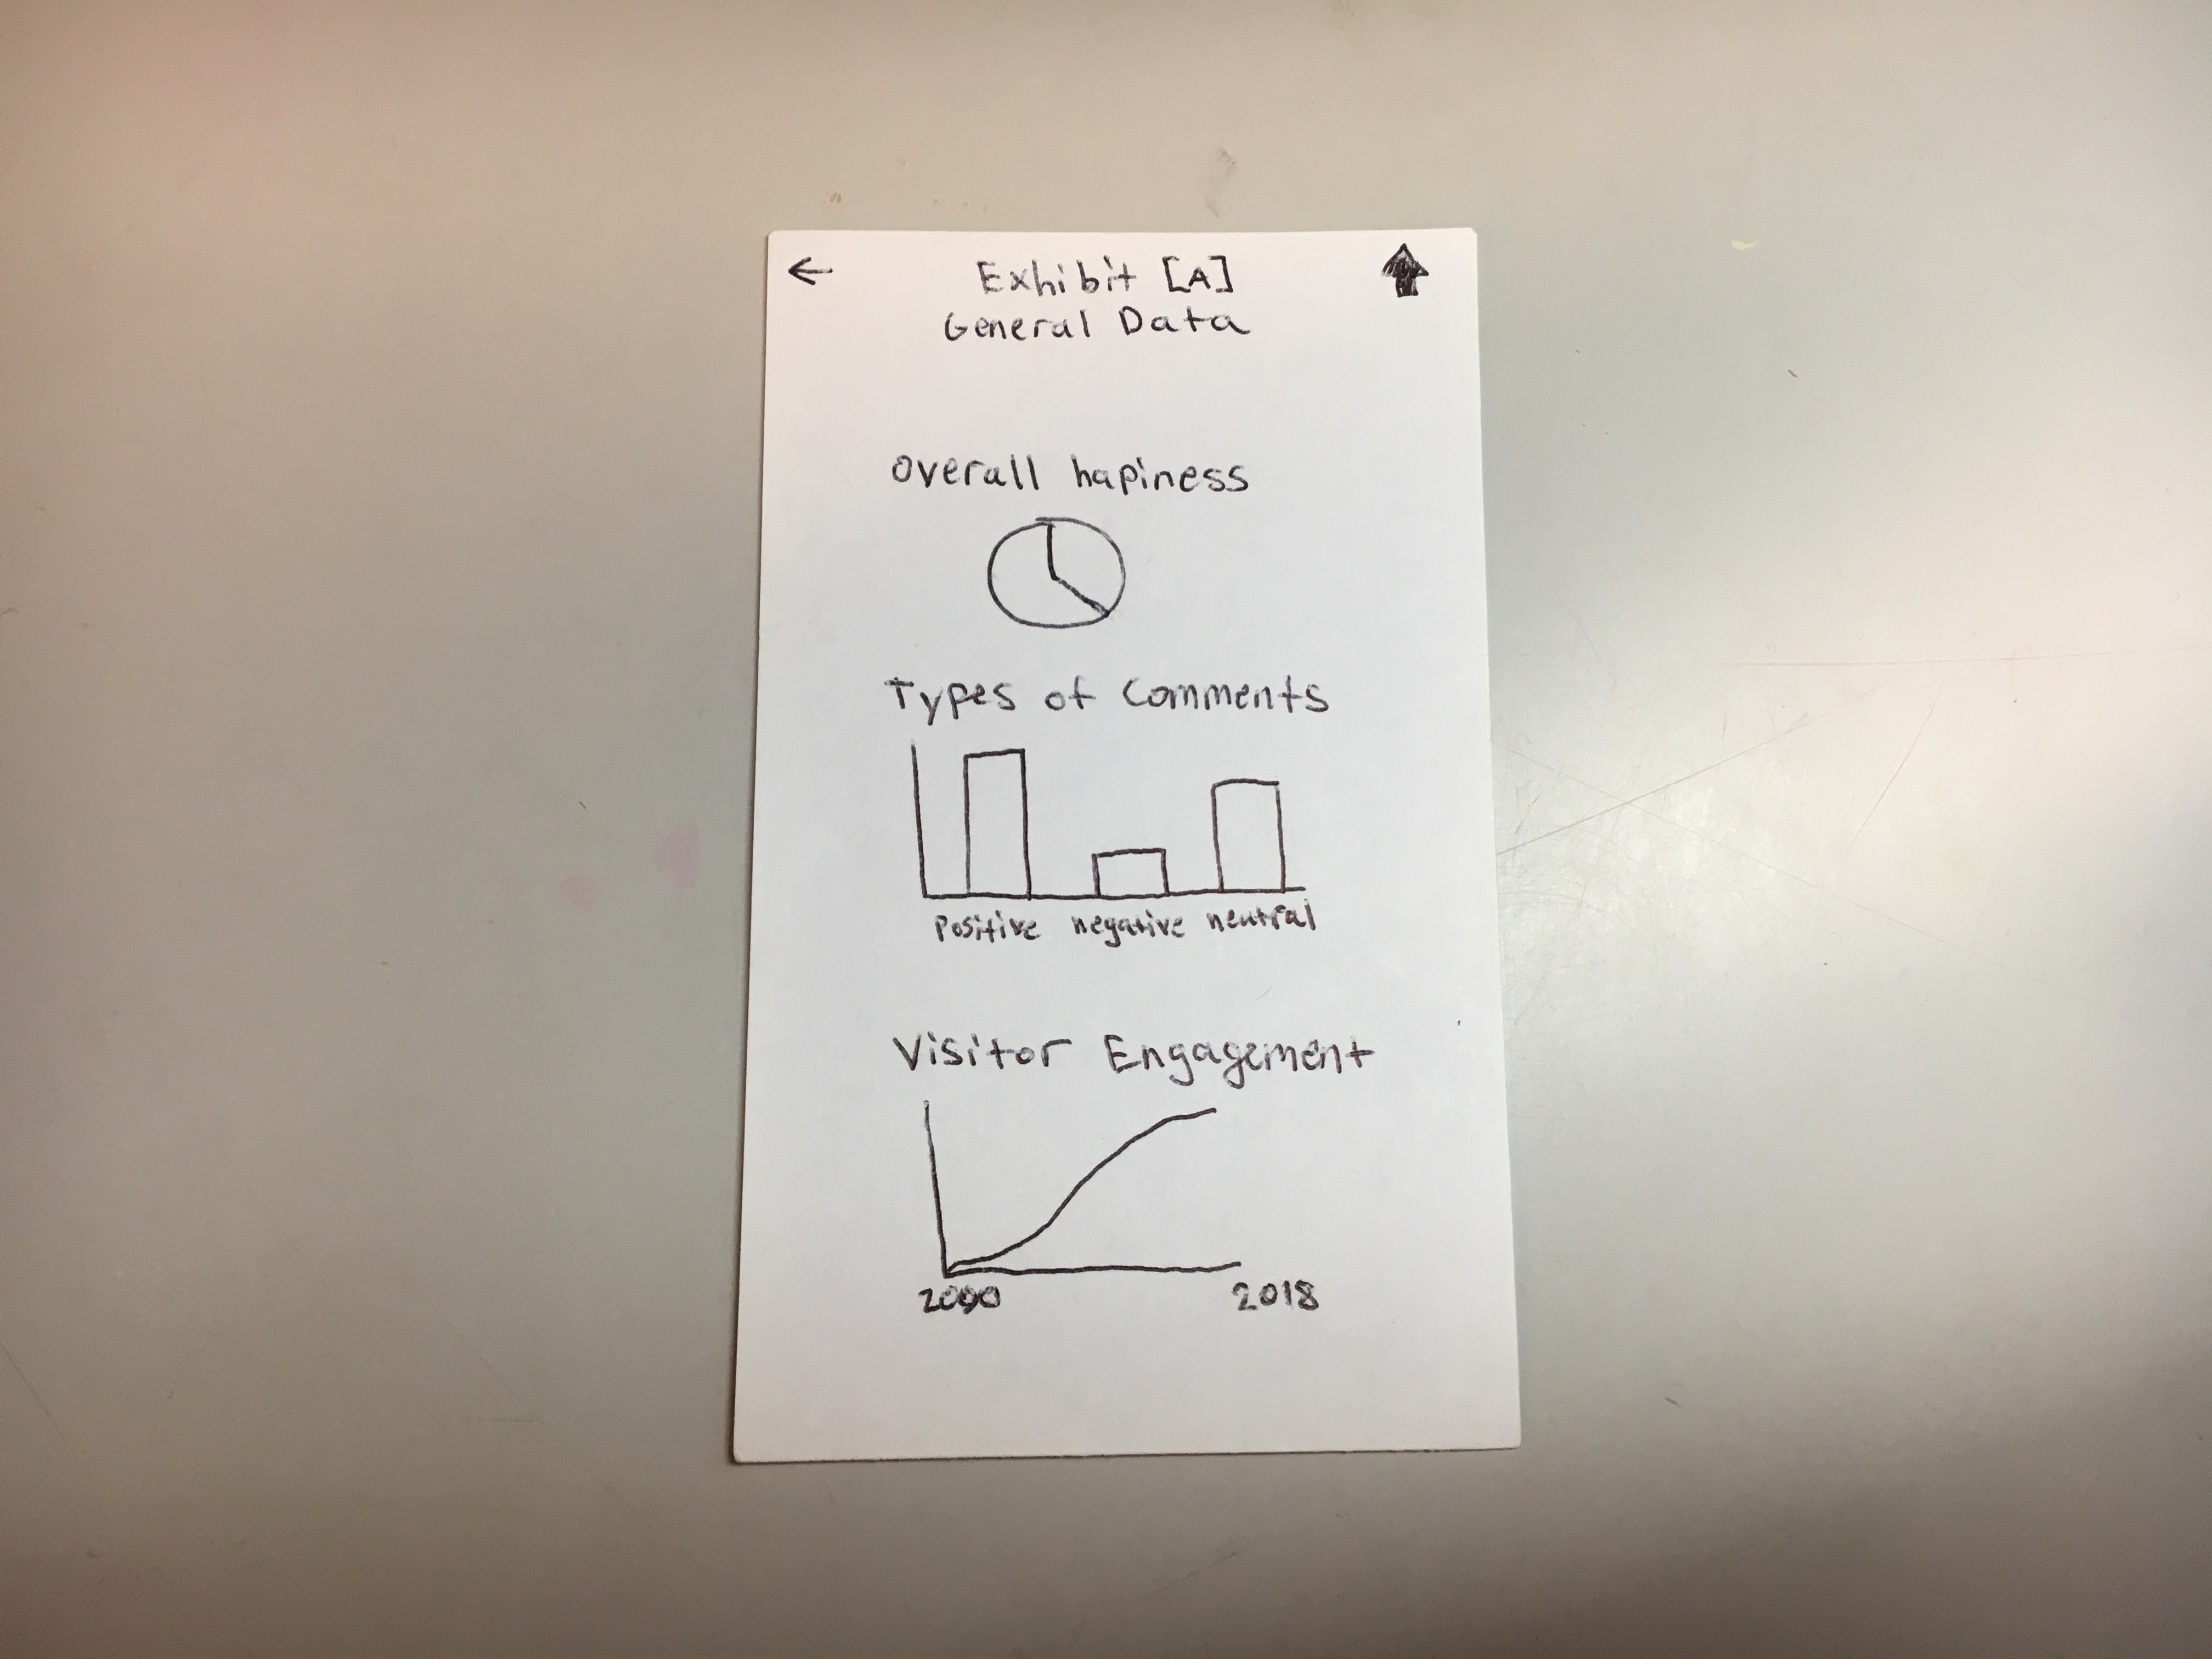 Exhibit [A]
General Data
Overall hapiness
Types of Comments
Positive negative neutral
Visitor Engagement
2000 2018